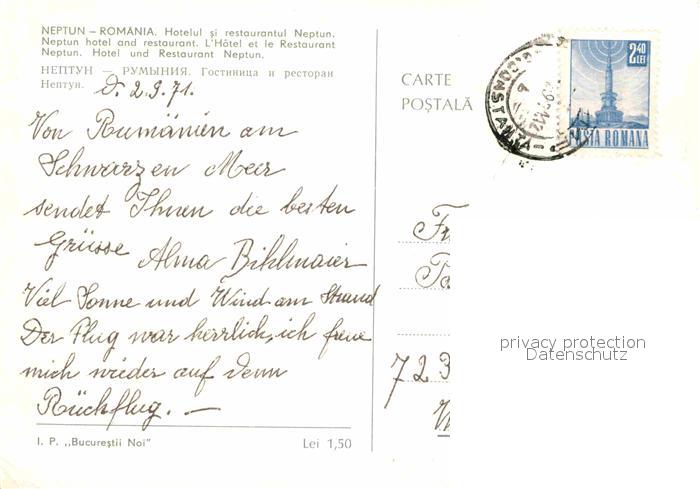 NEPTUN — ROMÂNIA. Hotelul și restaurantul Neptun.
Neptun hotel and restaurant. L'Hôtel et le Restaurant
Neptun. Hotel und Restaurant Neptun.
НЕПТУН — РУМЫНИЯ. Гостиница и ресторан
Нептун.
D. 2.9.71.
Von Rumänien am
Schwarzen Meer
sendet Ihnen die besten
Grüsse Alma Bihlmaier
Viel Sonne und Wind am Strand
Der Flug war herrlich, ich freue
mich wieder auf denn
Rückflug. —
I. P. „Bucureștii Noi"
Lei 1,50
CARTE
POȘTALĂ
CONSTANȚA
2,40
LEI
POSTA ROMANA
723
privacy protection
Datenschutz